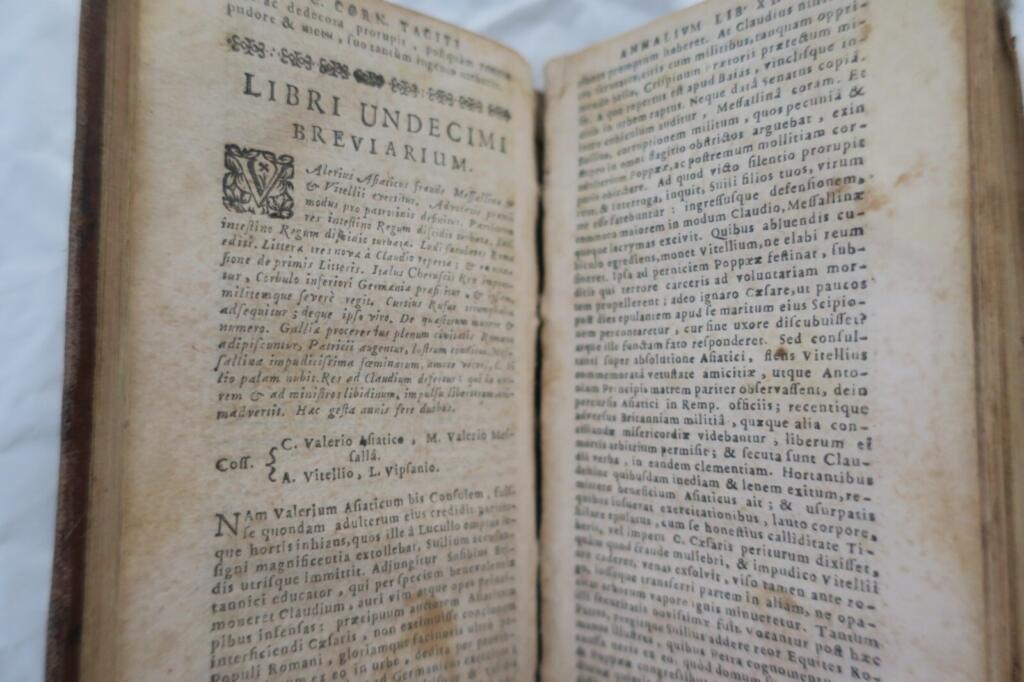 C. CORN. TACITI
ac dedecora prorupit, postquam remoto
pudore & metu, suo tantùm ingenio utebatur.
LIBRI UNDECIMI
BREVIARIUM.
VAlerius Asiaticus fraude Messallinæ
& Vitellii evertitur. Advocatis præmii
modus pro patrociniis definitus. Parthorum
res intestino Regum discidio turbatæ. Ludi
intestino Regum discidio turbatæ. Ludi sæculares Romæ
editi. Litteræ tres novæ à Claudio repertæ; & ex occa-
sione de primis Litteris. Italus Cheruscis Rex imponi-
tur, Corbulo inferiori Germaniæ præficitur, &
militemque severè regit. Curtius Rufus triumphalia
adsequitur; deque ipso viro. De quæstorum munere &
numero. Galliæ proceres jus plenum civitatis Romanæ
adipiscuntur, Patricii augentur, lustrum conditur. Mes-
sallina impudicissima fœminarum, amico veteri, C. Si-
lio palam nubit. Res ad Claudium defertur: qui in uxo-
rem & ad ministros libidinum, impulsu libertorum ani-
madvertit. Hæc gesta annis ferè duobus.
Coss. { C. Valerio Asiatico, M. Valerio Mes-
salla.
A. Vitellio, L. Vipsanio.
NAm Valerium Asiaticum bis Consulem, fuis-
se quondam adulterum eius credidit pariter-
que hortis inhians, quos ille à Lucullo cœptos in-
signi magnificentia extollebat, Suilium accusan-
dis utrisque immittit. Adjungitur Sosibius Bri-
tannici educator, qui per speciem benevolentiæ
moneret Claudium, cavere vim atque opes principi-
pibus infensas: præcipuum auctorem Asiaticum
interficiendi Cæsaris, non extimuisse concione
Populi Romani, gloriamque facinoris ultro pe-
ex eo in urbe, dedita per
ANNALIUM LIB. XI.
promptum haberet. At Claudius nihil
citis cum militibus, tanquam oppri-
mendo bello, Crispinum Prætorii præfectum mi-
sit. A quo repertus est apud Baias, vinclisque in-
ditis in urbem raptus. Neque data Senatus copia.
intra cubiculum auditur, Messallinâ coram. Et
Suilius, corruptionem militum, quos pecunia &
stupro in omni flagitio obstrictos arguebat, exin
adulterium Poppææ, ac postremum mollitiam cor-
poris obiectare. Ad quod victo silentio prorupit
reus, & interroga, inquit, Suili filios tuos, virum
me esse fatebuntur: ingressusque defensionem,
commoto maiorem in modum Claudio, Messallinæ
quoque lacrymas excivit. Quibus abluendis cu-
biculo egrediens, monet Vitellium, ne elabi reum
sineret. Ipsa ad perniciem Poppææ festinat, sub-
ditis qui terrore carceris ad voluntariam mor-
tem propellerent; adeo ignaro Cæsare, ut paucos
post dies epulantem apud se maritum eius Scipio-
nem percontaretur, cur sine uxore discubuisset?
atque ille functam fato responderet. Sed consul-
tanti super absolutione Asiatici, flens Vitellius
commemoratâ vetustate amicitiæ, utque Anto-
niam Principis matrem pariter observassent, dein
percursis Asiatici in Remp. officiis; recentique
adversus Britanniam militiâ, quæque alia con-
ciliandæ misericordiæ videbantur, liberum ei
mortis arbitrium permisit; & secuta sunt Clau-
dii verba, in eandem clementiam. Hortantibus
dehinc quibusdam inediam & lenem exitum, re-
mittere beneficium Asiaticus ait; & usurpatis
quibus insuerat exercitationibus, lauto corpore,
hilare epulatus, cum se honestius calliditate Ti-
berii, vel impetu C. Cæsaris periturum dixisset,
quàm quod fraude muliebri, & impudico Vitellii
ore caderet, venas exsolvit, viso tamen ante ro-
go, iussoque transferri partem in aliam, ne opa-
citas arborum vapore ignis minueretur. Tantum
illi securitatis novissimæ fuit. Vocantur post hæc
Patres, pergitque Suilius addere reos Equites Ro-
manos illustres, quibus Petra cognomentum